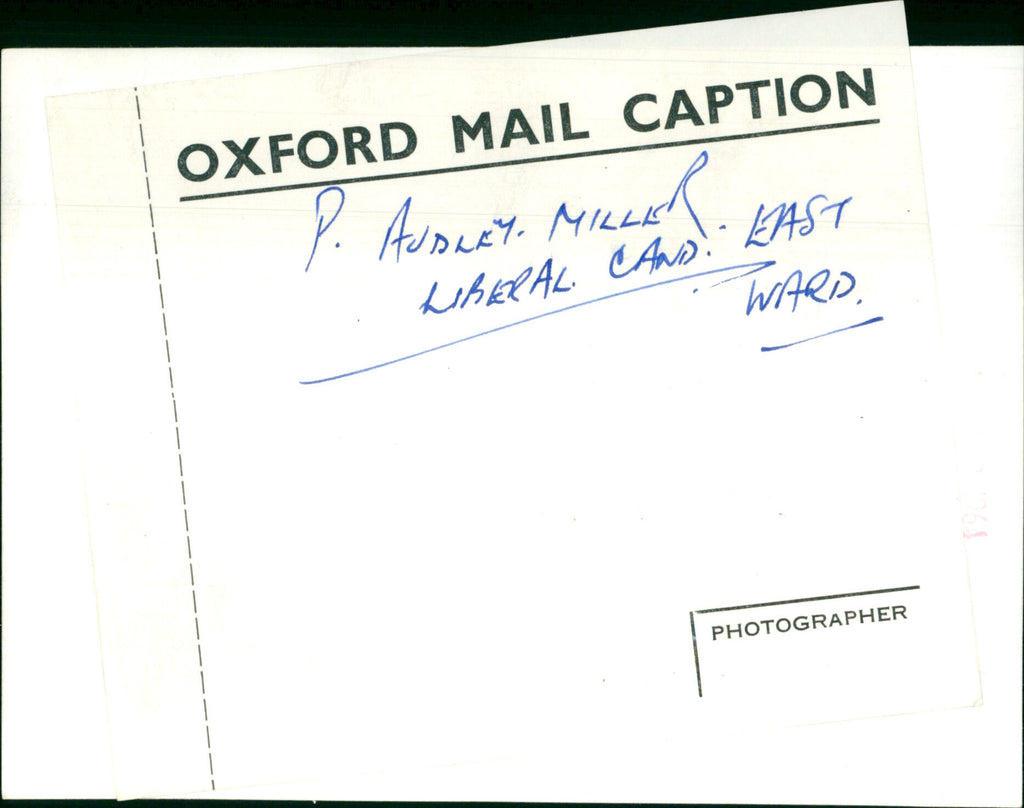 OXFORD MAIL CAPTION
P. AUDLEY-MILLER.
LIBERAL. CAND. EAST
WARD.
PHOTOGRAPHER